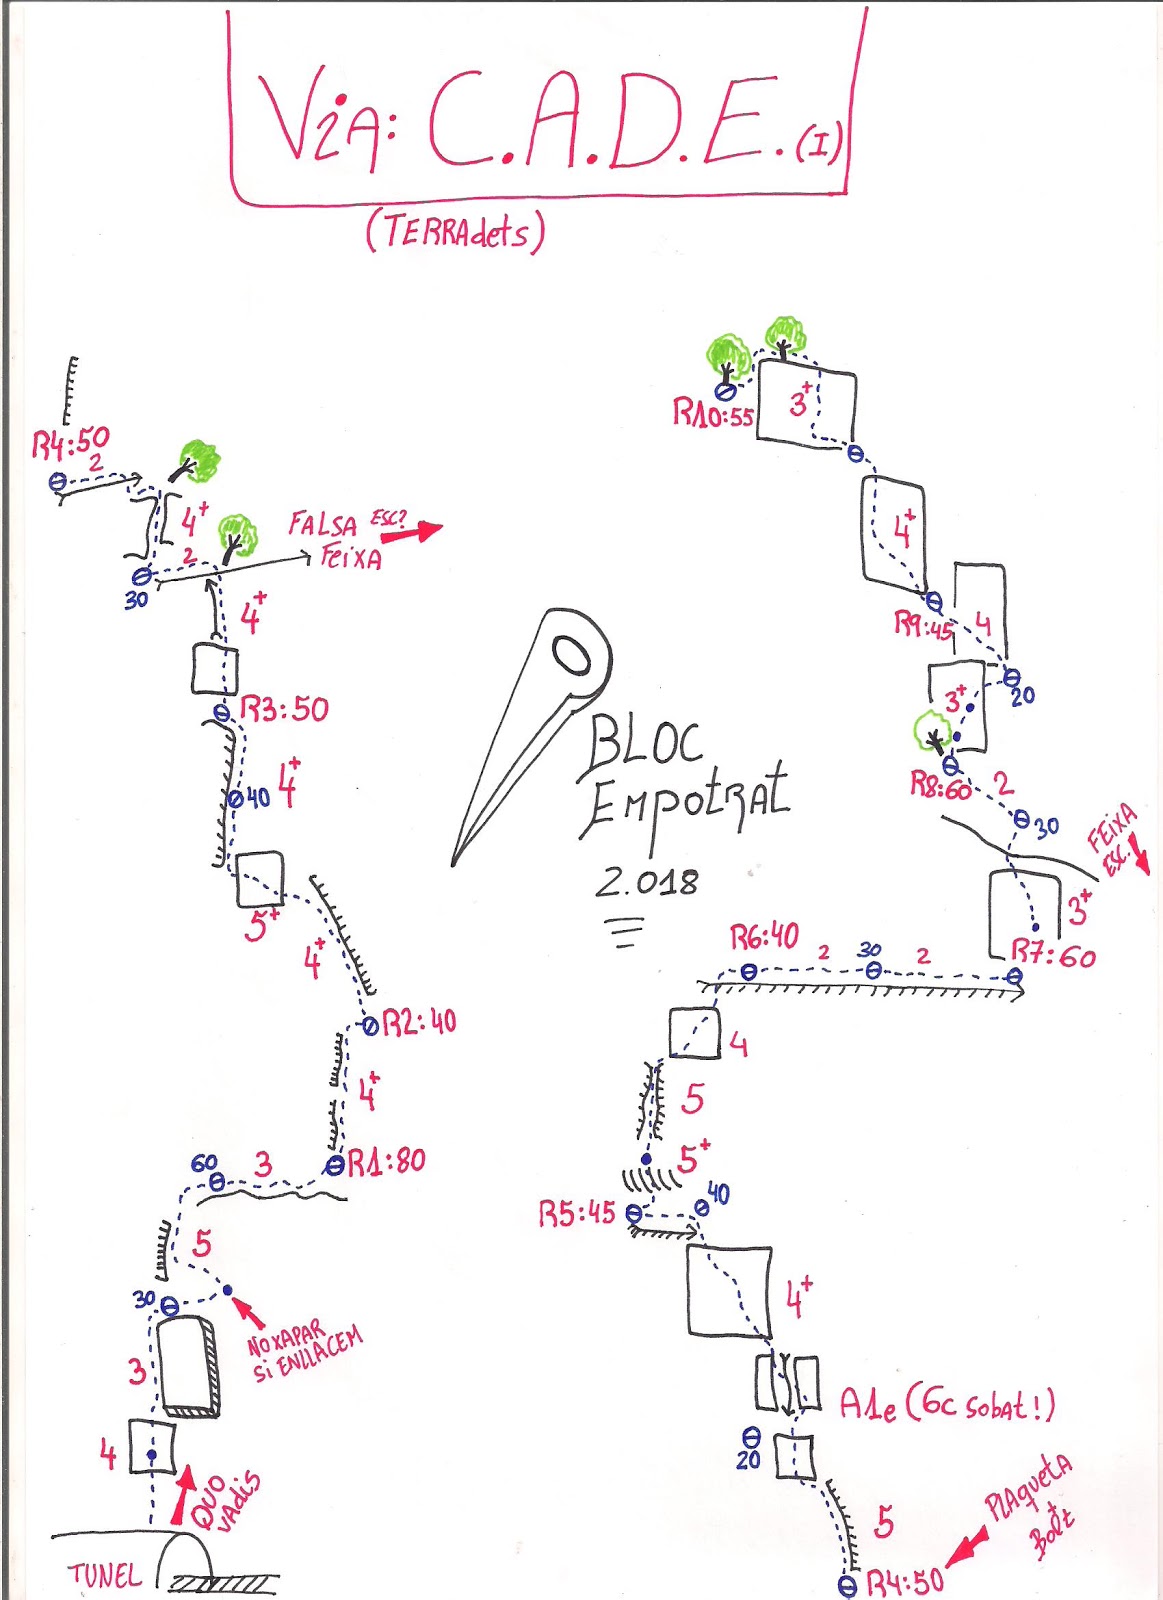 Via: C.A.D.E. (I)
(TERRAdets)
R4:50
2
4+
FALSA ESC?
FeixA
2
30
4+
R3:50
4+
40
5+
4+
R2:40
4+
60
3
R1:80
5
30
NO XAPAR
Si ENLLACEM
3
4
QUO
VAdiS
TUNEL
BLOC
EmpotRAt
2.018
R10:55
3+
4+
R9:45
4
20
3+
R8:60
2
30
FEIXA
ESC.
3+
R7:60
R6:40
2
30
2
4
5
5+
R5:45
40
4+
A1e (6c SobAt!)
20
5
PlAquetA
+
Bolt
R4:50